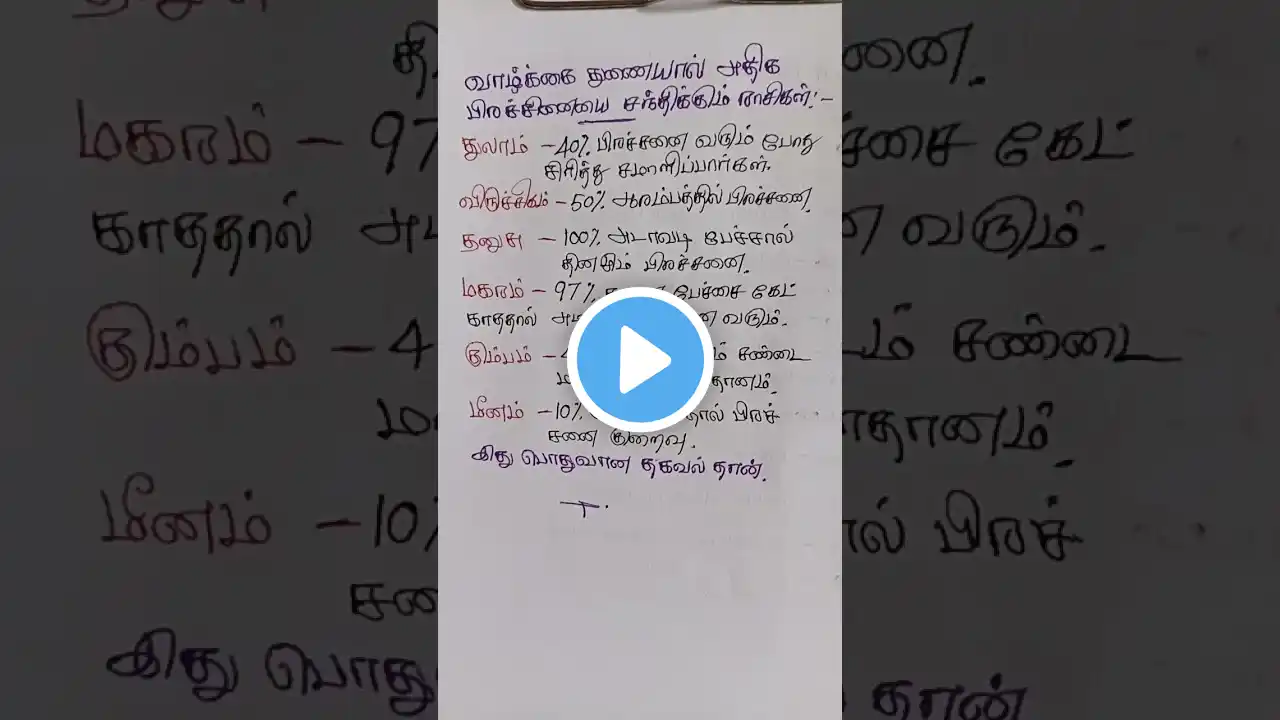 வாழ்க்கை துணையால் அதிக
பிரச்சினையை சந்திக்கும் ராசிகள்:-
துலாம் - 40% பிரச்சனை வரும் போது
சிரித்து சமாளிப்பார்கள்.
விருச்சிகம் - 50% ஆரம்பத்தில் பிரச்சனை.
தனுசு - 100% அடாவடி பேச்சால்
தினசரி பிரச்சனை.
மகரம் - 97% பேச்சை கேட்
காததால் வரும்.
கும்பம் - சண்டை
மீனம் - 10% பிரச்
சனை குறைவு.
இது பொதுவான தகவல் தான்.